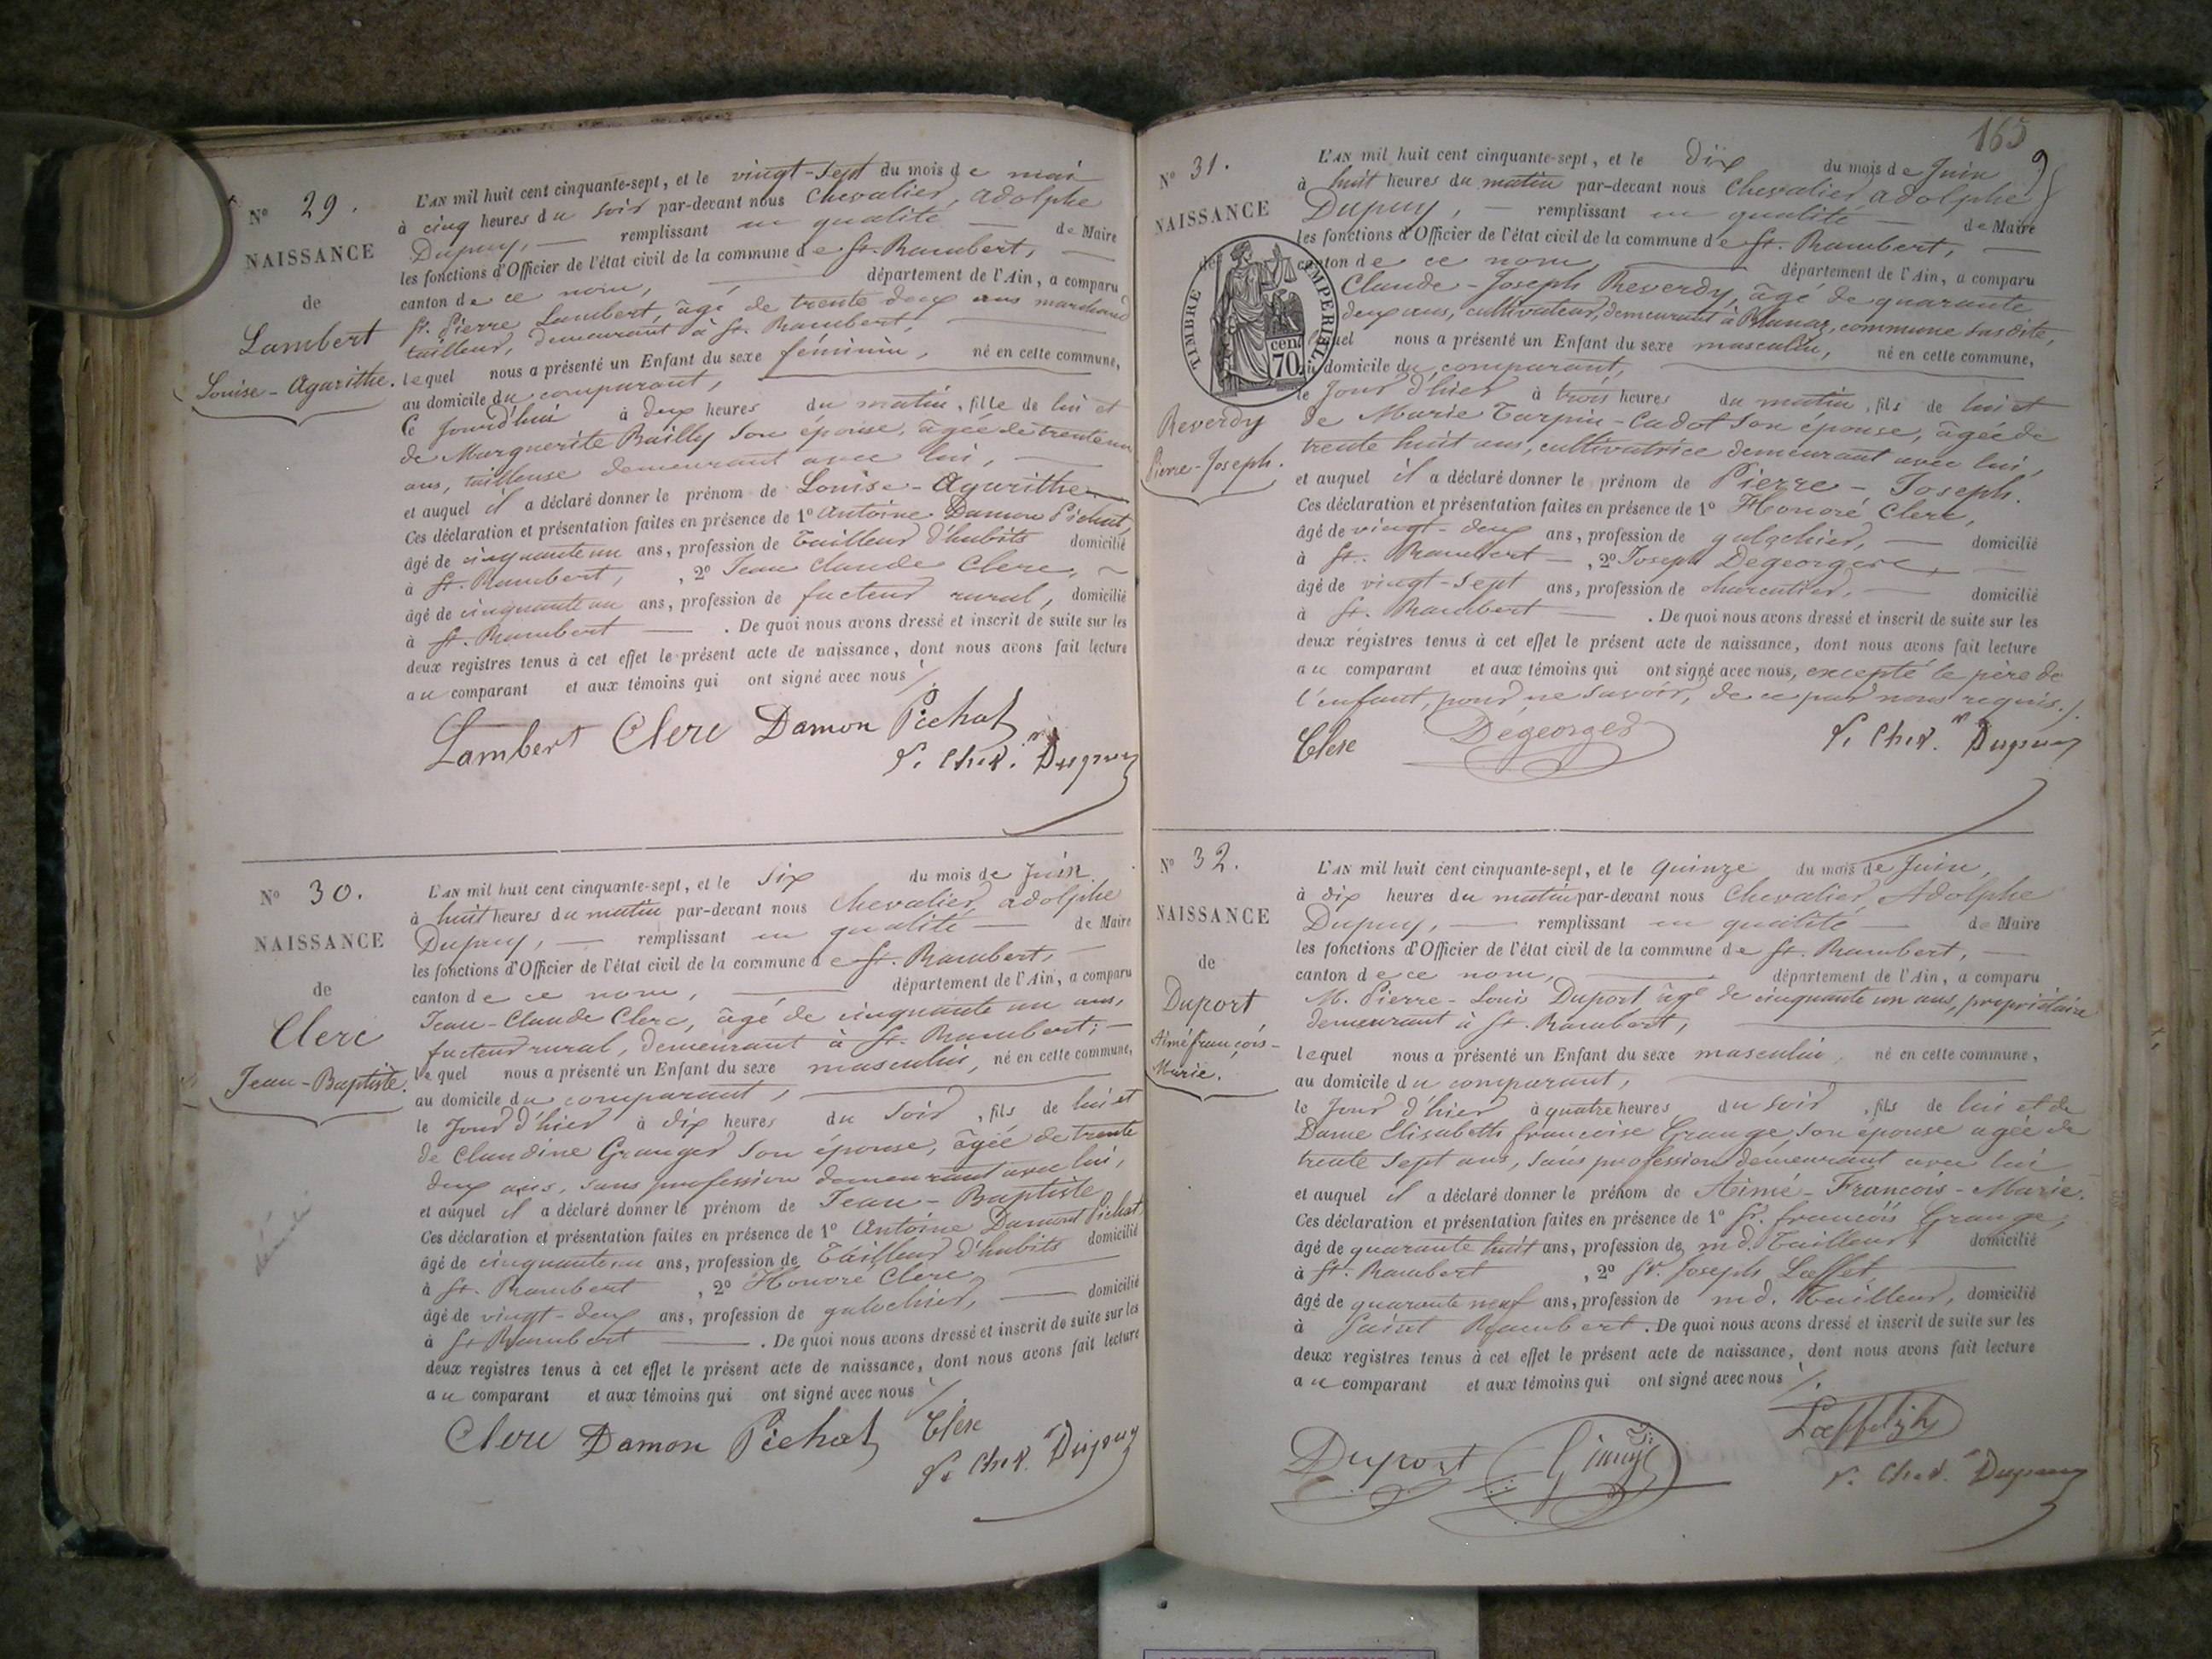 N° 29.
NAISSANCE
de
Lambert
Louise-Agarithe.
L'AN mil huit cent cinquante-sept, et le vingt-sept du mois de mai
à cinq heures du soir par-devant nous Chevalier, adolphe
Dupuy, remplissant en qualité de Maire
les fonctions d'Officier de l'état civil de la commune de St. Rambert,
canton de ce nom, département de l'Ain, a comparu
Sr. Pierre Lambert, âgé de trente deux ans marchand
tailleur, demeurant à St. Rambert,
lequel nous a présenté un Enfant du sexe féminin, né en cette commune,
au domicile du comparant,
ce jourd'hui à deux heures du matin, fille de lui et
de Marguerite Bailly son épouse, âgée de trente un
ans, tailleuse demeurant avec lui,
et auquel il a déclaré donner le prénom de Louise-Agarithe
Ces déclaration et présentation faites en présence de 1° Antoine Damon Pichat,
âgé de cinquante un ans, profession de Tailleur d'habits domicilié
à St. Rambert, , 2° Jean Claude Clerc,
âgé de cinquante un ans, profession de facteur rural, domicilié
à St. Rambert . De quoi nous avons dressé et inscrit de suite sur les
deux registres tenus à cet effet le présent acte de naissance, dont nous avons fait lecture
au comparant et aux témoins qui ont signé avec nous ./.
Lambert Clerc Damon Pichat
Dupuy
N° 30.
NAISSANCE
de
Clerc
Jean-Baptiste.
L'AN mil huit cent cinquante-sept, et le six du mois de Juin
à huit heures du matin par-devant nous Chevalier adolphe
Dupuy, remplissant en qualité de Maire
les fonctions d'Officier de l'état civil de la commune de St. Rambert,
canton de ce nom, département de l'Ain, a comparu
Jean-Claude Clerc, âgé de cinquante un ans,
facteur rural, demeurant à St. Rambert;
lequel nous a présenté un Enfant du sexe masculin, né en cette commune,
au domicile du comparant,
le jour d'hier à dix heures du soir, fils de lui et
de Claudine Granger son épouse, âgée de trente
deux ans, sans profession demeurant avec lui,
et auquel il a déclaré donner le prénom de Jean-Baptiste
Ces déclaration et présentation faites en présence de 1° Antoine Damont Pichat
âgé de cinquante un ans, profession de Tailleur d'habits domicilié
à St. Rambert , 2° Honoré Clerc
âgé de vingt-deux ans, profession de galochier, domicilié
à St Rambert . De quoi nous avons dressé et inscrit de suite sur les
deux registres tenus à cet effet le présent acte de naissance, dont nous avons fait lecture
au comparant et aux témoins qui ont signé avec nous ./.
Clerc Damon Pichat Clerc
Dupuy
165
N° 31.
NAISSANCE
de
TIMBRE IMPERIAL
70 cen.
Reverdy
Pierre-Joseph.
L'AN mil huit cent cinquante-sept, et le dix du mois de Juin
à huit heures du matin par-devant nous Chevalier adolphe
Dupuy, remplissant en qualité de Maire
les fonctions d'Officier de l'état civil de la commune de St. Rambert,
canton de ce nom, département de l'Ain, a comparu
Claude-Joseph Reverdy, âgé de quarante
deux ans, cultivateur, demeurant à Blanaz, commune susdite,
lequel nous a présenté un Enfant du sexe masculin, né en cette commune,
au domicile du comparant,
le jour d'hier à trois heures du matin, fils de lui et
de Marie Tarpin-Cadot son épouse, âgée de
trente huit ans, cultivatrice demeurant avec lui,
et auquel il a déclaré donner le prénom de Pierre-Joseph.
Ces déclaration et présentation faites en présence de 1° Honoré Clerc,
âgé de vingt-deux ans, profession de galochier, domicilié
à St. Rambert , 2° Joseph Degeorges,
âgé de vingt-sept ans, profession de charcutier, domicilié
à St. Rambert . De quoi nous avons dressé et inscrit de suite sur les
deux registres tenus à cet effet le présent acte de naissance, dont nous avons fait lecture
au comparant et aux témoins qui ont signé avec nous, excepté le père de
l'enfant, pour ne savoir, de ce par nous requis ./.
Clerc Degeorges
Dupuy
N° 32.
NAISSANCE
de
Duport
Aimé françois-
Marie.
L'AN mil huit cent cinquante-sept, et le quinze du mois de Juin,
à dix heures du matin par-devant nous Chevalier Adolphe
Dupuy, remplissant en qualité de Maire
les fonctions d'Officier de l'état civil de la commune de St. Rambert,
canton de ce nom, département de l'Ain, a comparu
M. Pierre-Louis Duport âgé de cinquante un ans, propriétaire
demeurant à St. Rambert,
lequel nous a présenté un Enfant du sexe masculin, né en cette commune,
au domicile du comparant,
le jour d'hier à quatre heures du soir, fils de lui et de
Dame Elisabeth françoise Grange, son épouse agée de
trente sept ans, sans profession demeurant avec lui
et auquel il a déclaré donner le prénom de Aimé-François-Marie.
Ces déclaration et présentation faites en présence de 1° Sr. françois Grange,
âgé de quarante huit ans, profession de md. Tailleur, domicilié
à St. Rambert , 2° Sr. Joseph
âgé de quarante neuf ans, profession de md. Tailleur, domicilié
à Saint Rambert . De quoi nous avons dressé et inscrit de suite sur les
deux registres tenus à cet effet le présent acte de naissance, dont nous avons fait lecture
au comparant et aux témoins qui ont signé avec nous ./.
Duport Grange
Dupuy